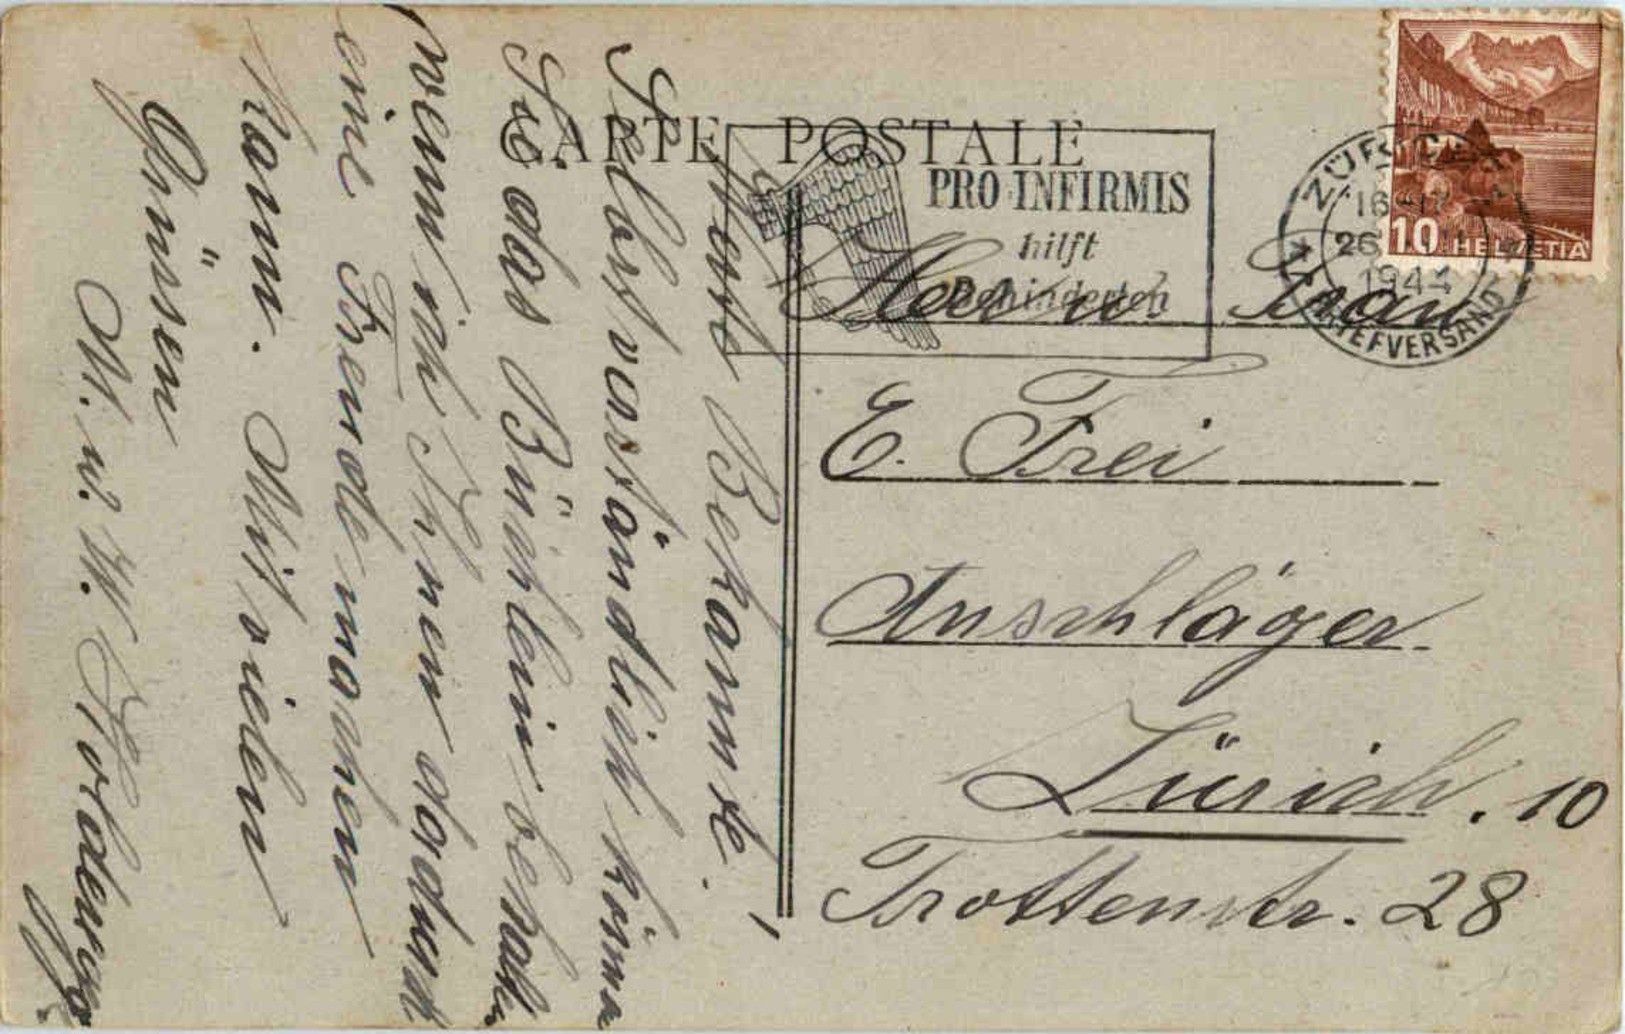 CARTE POSTALE
PRO INFIRMIS
hilft
Behinderten
ZÜRICH
16
26
1944
BRIEFVERSAND
10 HELVETIA
Herr u. Frau
E. Frei
Anschläger
Zürich. 10
Trottenstr. 28
Werte Bekannte.
Selbst vorständlich könn
Sie das Büchlein behalt.
wenn ich Ihnen dadurch
eine Freude machen
kann. Mit vielen
Grüssen
M. u. W.